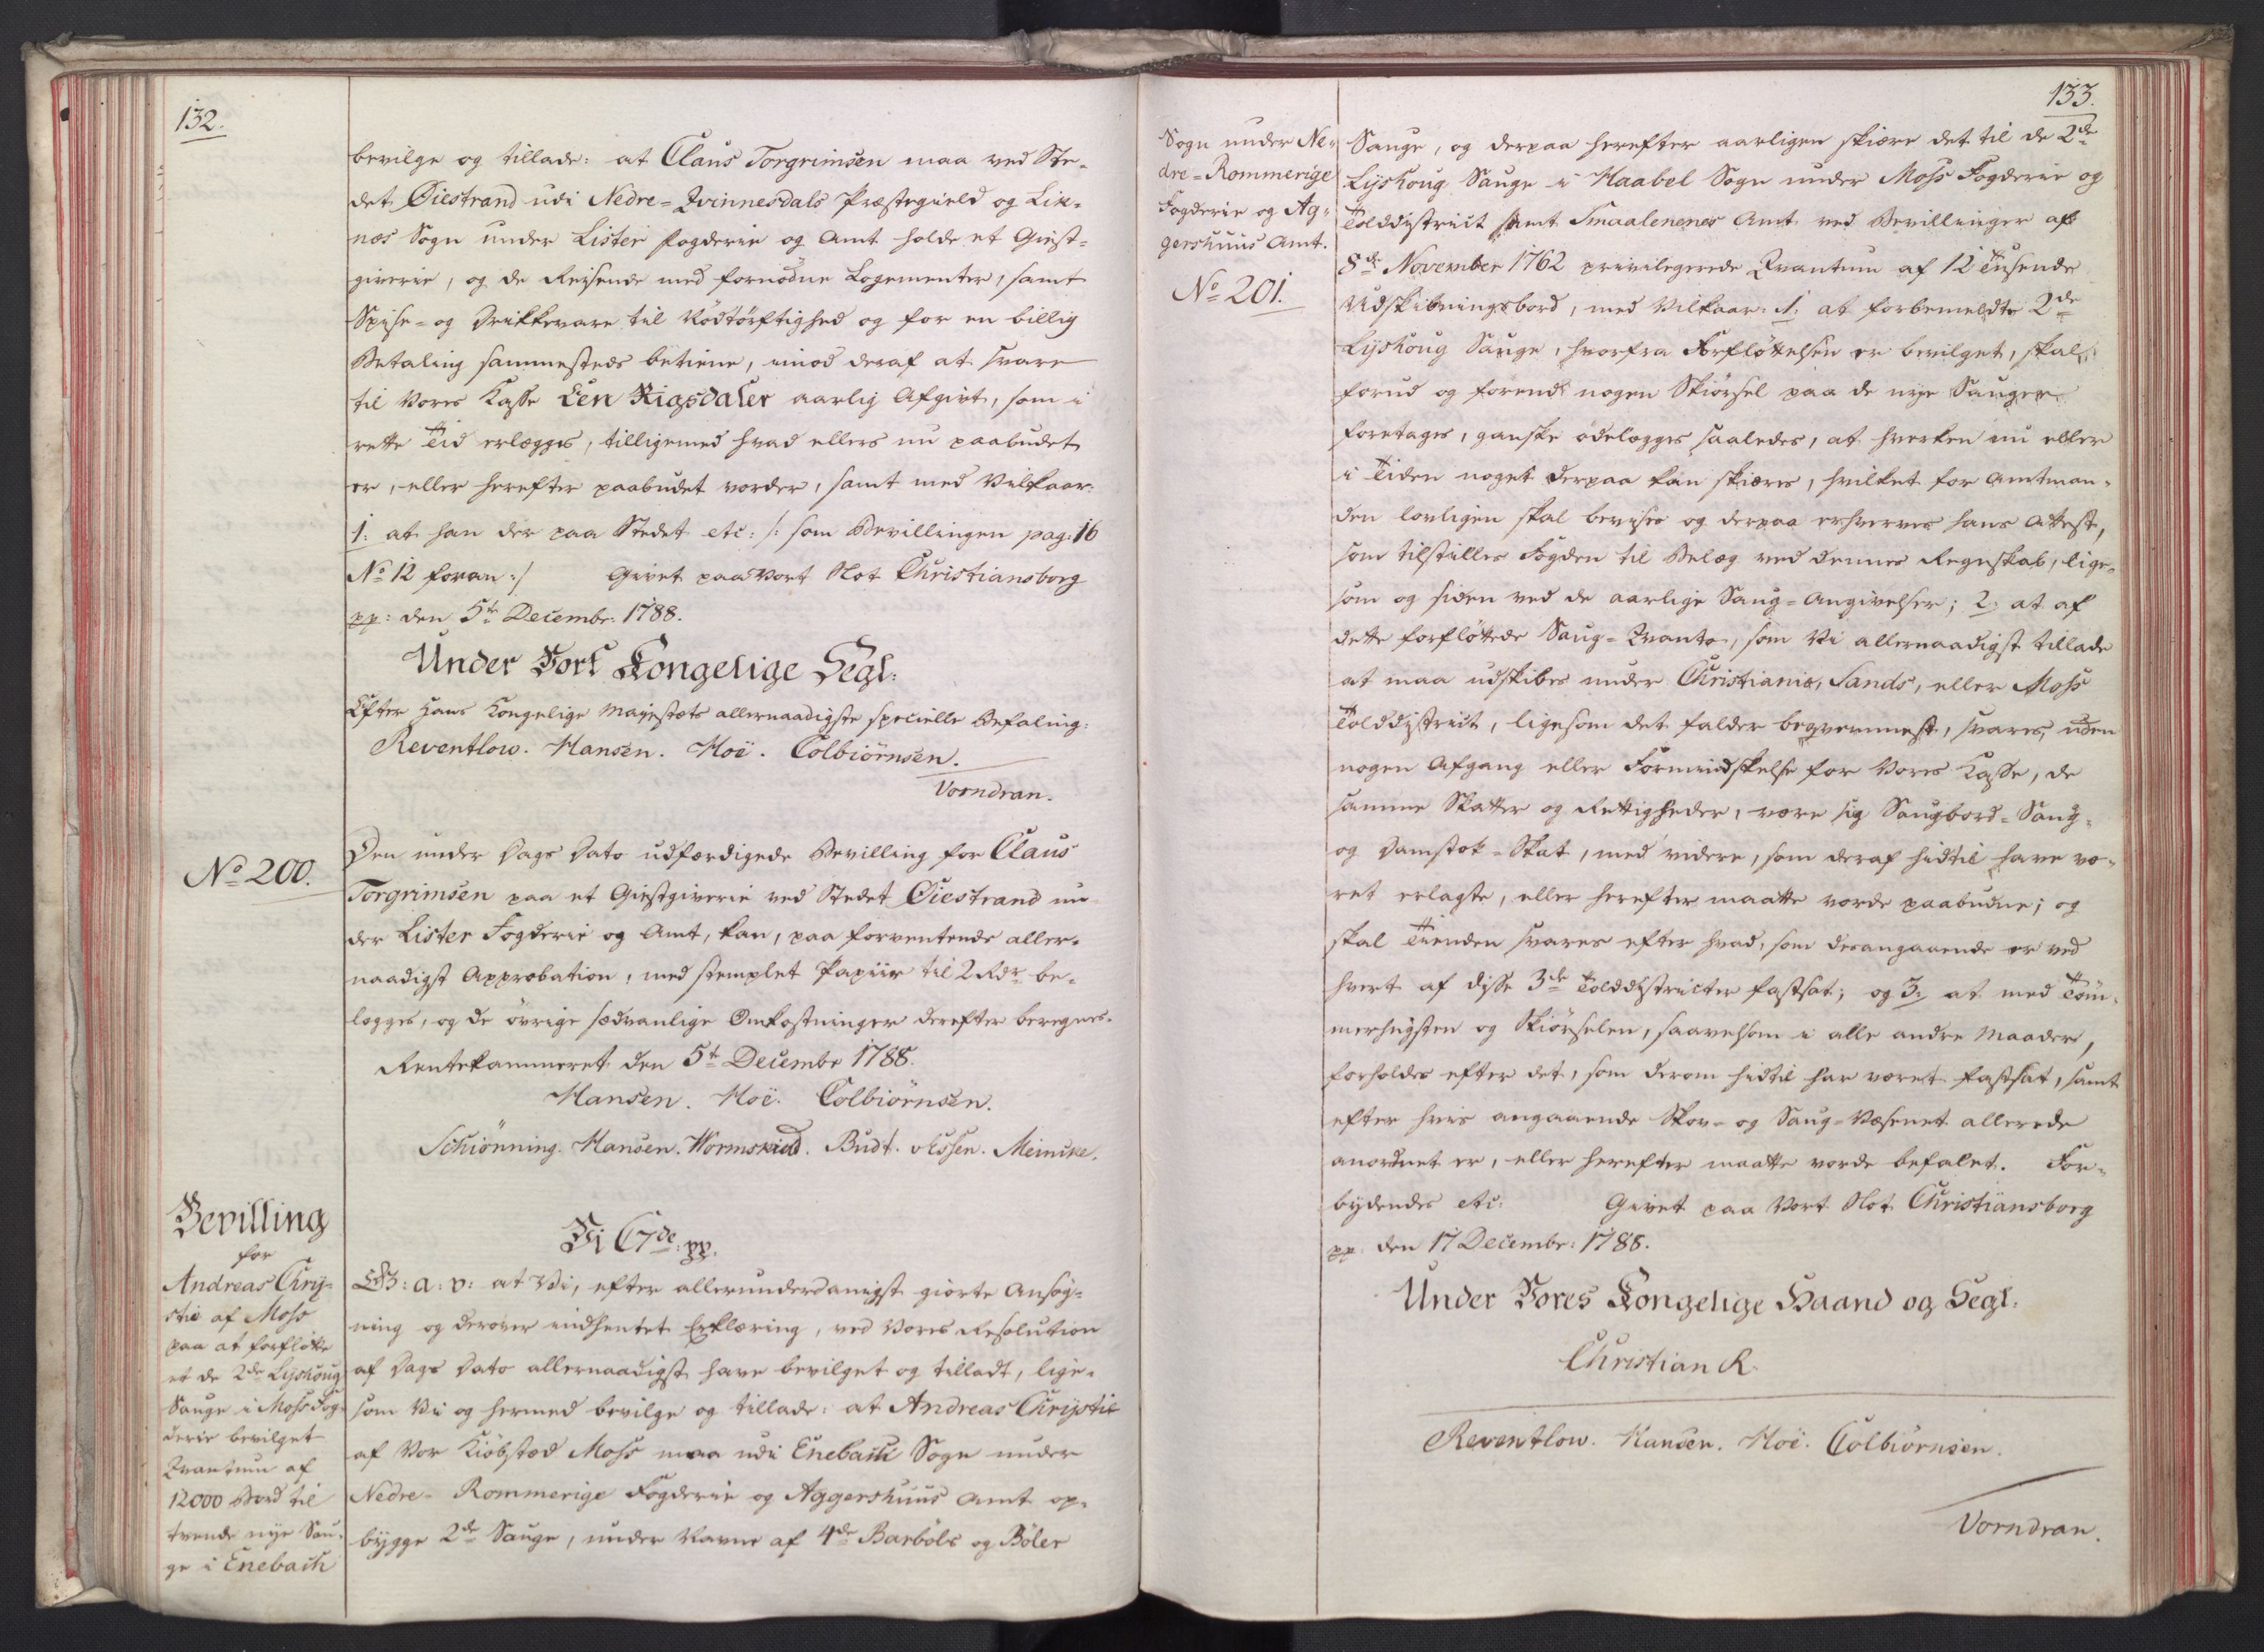 132.
bevilge og tillade: at Claus Torgrimsen maa ved Ste-
det Öiestrand udi Nedre-Qvinnesdals Præstegield og Lik-
næs Sogn under Lister Fogderie og Amt holde et Giest-
giverie, og de Reisende med fornödne Logementer, samt
Spise- og Drikkevare til Nödtörftighed og for en billig
Betaling sammesteds betiene, imod deraf at svare
til Vores Kasse Een Rigsdaler aarlig Afgivt, som i
rette Tid erlægges, tilligemed hvad ellers nu paabudet
er, eller herefter paabudet vorder, samt med Vilkaar:
1: at han der paa Stedet etc: /: som Bevillingen pag: 16
No 12 foran :/ Givet paa Vort Slot Christiansborg
pp: den 5te Decembr: 1788.
Under Vort Kongelige Segl:
Efter Hans Kongelige Majestæts allernaadigste specielle Befaling:
Reventlow. Hansen. Hoë. Colbiörnsen.
Vorndran.
No 200.
Den under Dags Dato udfærdigede Bevilling for Claus
Torgrimsen paa et Giestgiverie ved Stedet Öiestrand un-
der Lister Fogderie og Amt, kan, paa forventende aller-
naadigst Approbation, med stemplet Papiir til 2 Rdr be-
lægges, og de övrige sædvanlige Omkostninger derefter beregnes.
Rentekammeret den 5te Decembr 1788.
Hansen. Hoë. Colbiörnsen.
Schiönning. Hansen. Wormskiold. Budt. v Essen. Meincke.
Bevilling
for
Andreas Chry-
stie af Moss
paa at forflötte
et de 2de Lyshoug
Sauge i Moss Fog-
derie bevilget
Qvantum af
12000 Bord til
tvende nye Sau-
ge i Enebach
Vi C7de: pp.
G: a: v: at Vi, efter allerunderdanigst giorte Ansög-
ning og derover indhentet Erklæring, ved Vores Resolution
af Dags Dato allernaadigst have bevilget og tilladt, lige-
som Vi og hermed bevilge og tillade: at Andreas Chrystie
af Vor Kiöbstæd Moss maa udi Enebach Sogn under
Nedre-Rommerige Fogderie og Aggershuus Amt op-
bygge 2de Sauge, under Navne af 4de Barböls og Böler
133.
Sogn under Ne-
dre-Rommerige
Fogderie og Ag-
gershuus Amt.
No 201.
Sauge, og derpaa herefter aarligen skiære det til de 2de
Lyshoug Sauge i Haabel Sogn under Moss Fogderie og
Tolddistrict samt Smaalenenes Amt ved Bevillinger af
8de November 1762 privilegerede Qvantum af 12 Tusende
Udskibningsbord, med Vilkaar: 1: at forbemeldte 2de
Lyshoug Sauge, hvorfra Forflöttelsen er bevilget, skal
forud og förend nogen Skiörsel paa de nye Sauger
foretages, ganske ödelægges saaledes, at hverken nu eller
i Tiden noget derpaa kan skiæres, hvilket for Amtman-
den lovligen skal bevises og derpaa erhverves hans Attest,
som tilstilles Fogden til Belæg ved dennes Regnskab, lige-
som og siden ved de aarlige Saug-Angivelser; 2: at af
dette forflöttede Saug-Qvanto, som Vi allernaadigst tillade
at maa udskibes under Christianiæ, Sands, eller Moss
Tolddistrict, ligesom det falder beqvemmest, svares, uden
nogen Afgang eller Formindskelse for Vores Kasse, de
samme Skatter og Rettigheder, være sig Saugbord- Saug-
og Damstok-Skat, med videre, som deraf hidtil have væ-
ret erlagte, eller herefter maatte vorde paabudne; og
skal Tienden svares efter hvad, som desangaaende er ved
hvert af disse 3de Tolddistricter fastsat; og 3: at med Töm-
merhugsten og Skiörselen, saavelsom i alle andre Maader,
forholdes efter det, som derom hidtil har været fastsat, samt
efter hvis angaaende Skov- og Saug-Væsenet allerede
anordnet er, eller herefter maatte vorde befalet. For-
bydendes etc: Givet paa Vort Slot Christiansborg
pp: den 17 Decembr: 1788.
Under Vores Kongelige Haand og Segl:
Christian R.
Reventlow. Hansen. Hoë. Colbiörnsen.
Vorndran.